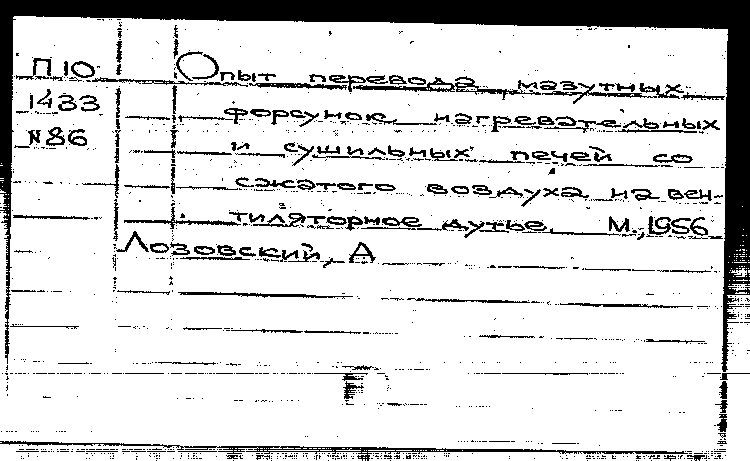 П10
1433
N86
Опыт перевода мазутных
форсунок нагревательных
и сушильных печей со
сжатого воздуха на вен-
тиляторное дутье. М., 1956
Лозовский, А